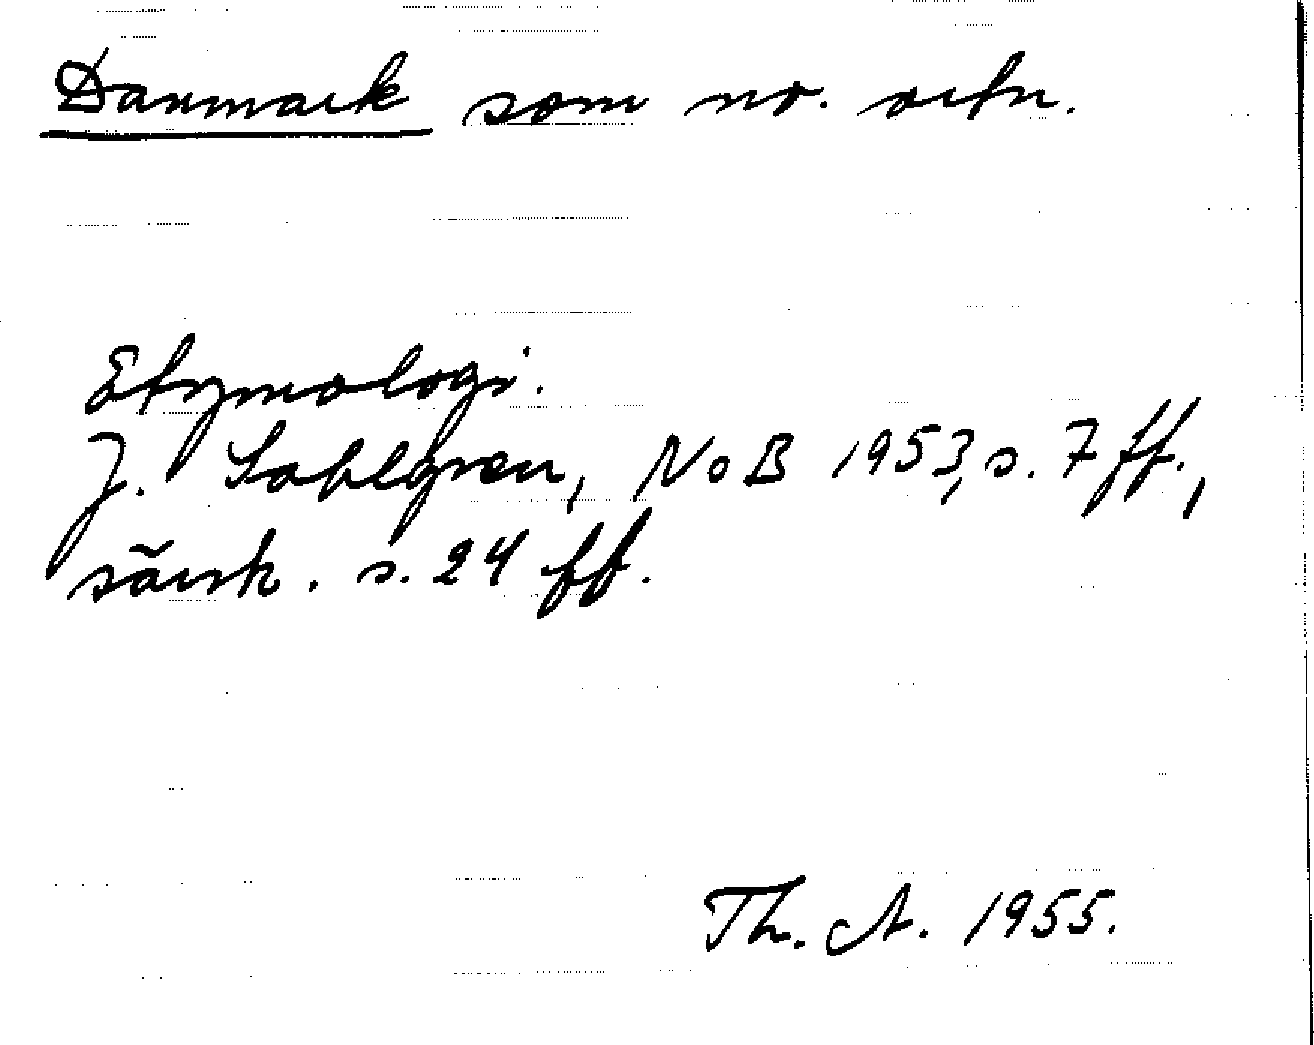 Danmark som no. ortn.
Etymologi.
J. Sahlgren, NoB 1953, s. 7 ff.,
särsk. s. 24 ff.
Th. A. 1955.